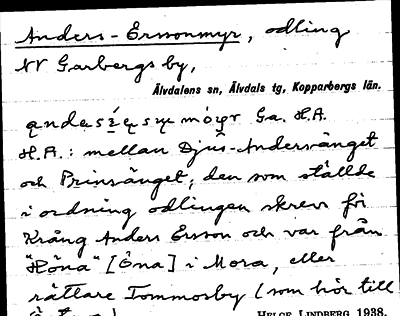 Anders-Erssonmyr, odling
NV Garbergs by,
Älvdalens sn, Älvdals tg, Kopparbergs län.
Ga. H.A.
H.A.: mellan Djus-Andersvänget
och Prinsvänget; den som ställde
i ordning odlingen skrevs för
Krång Anders Ersson och var från
"Höna" [Öna] i Mora, eller
rättare Tommosby (som hör till
HELGE LINDBERG 1938.